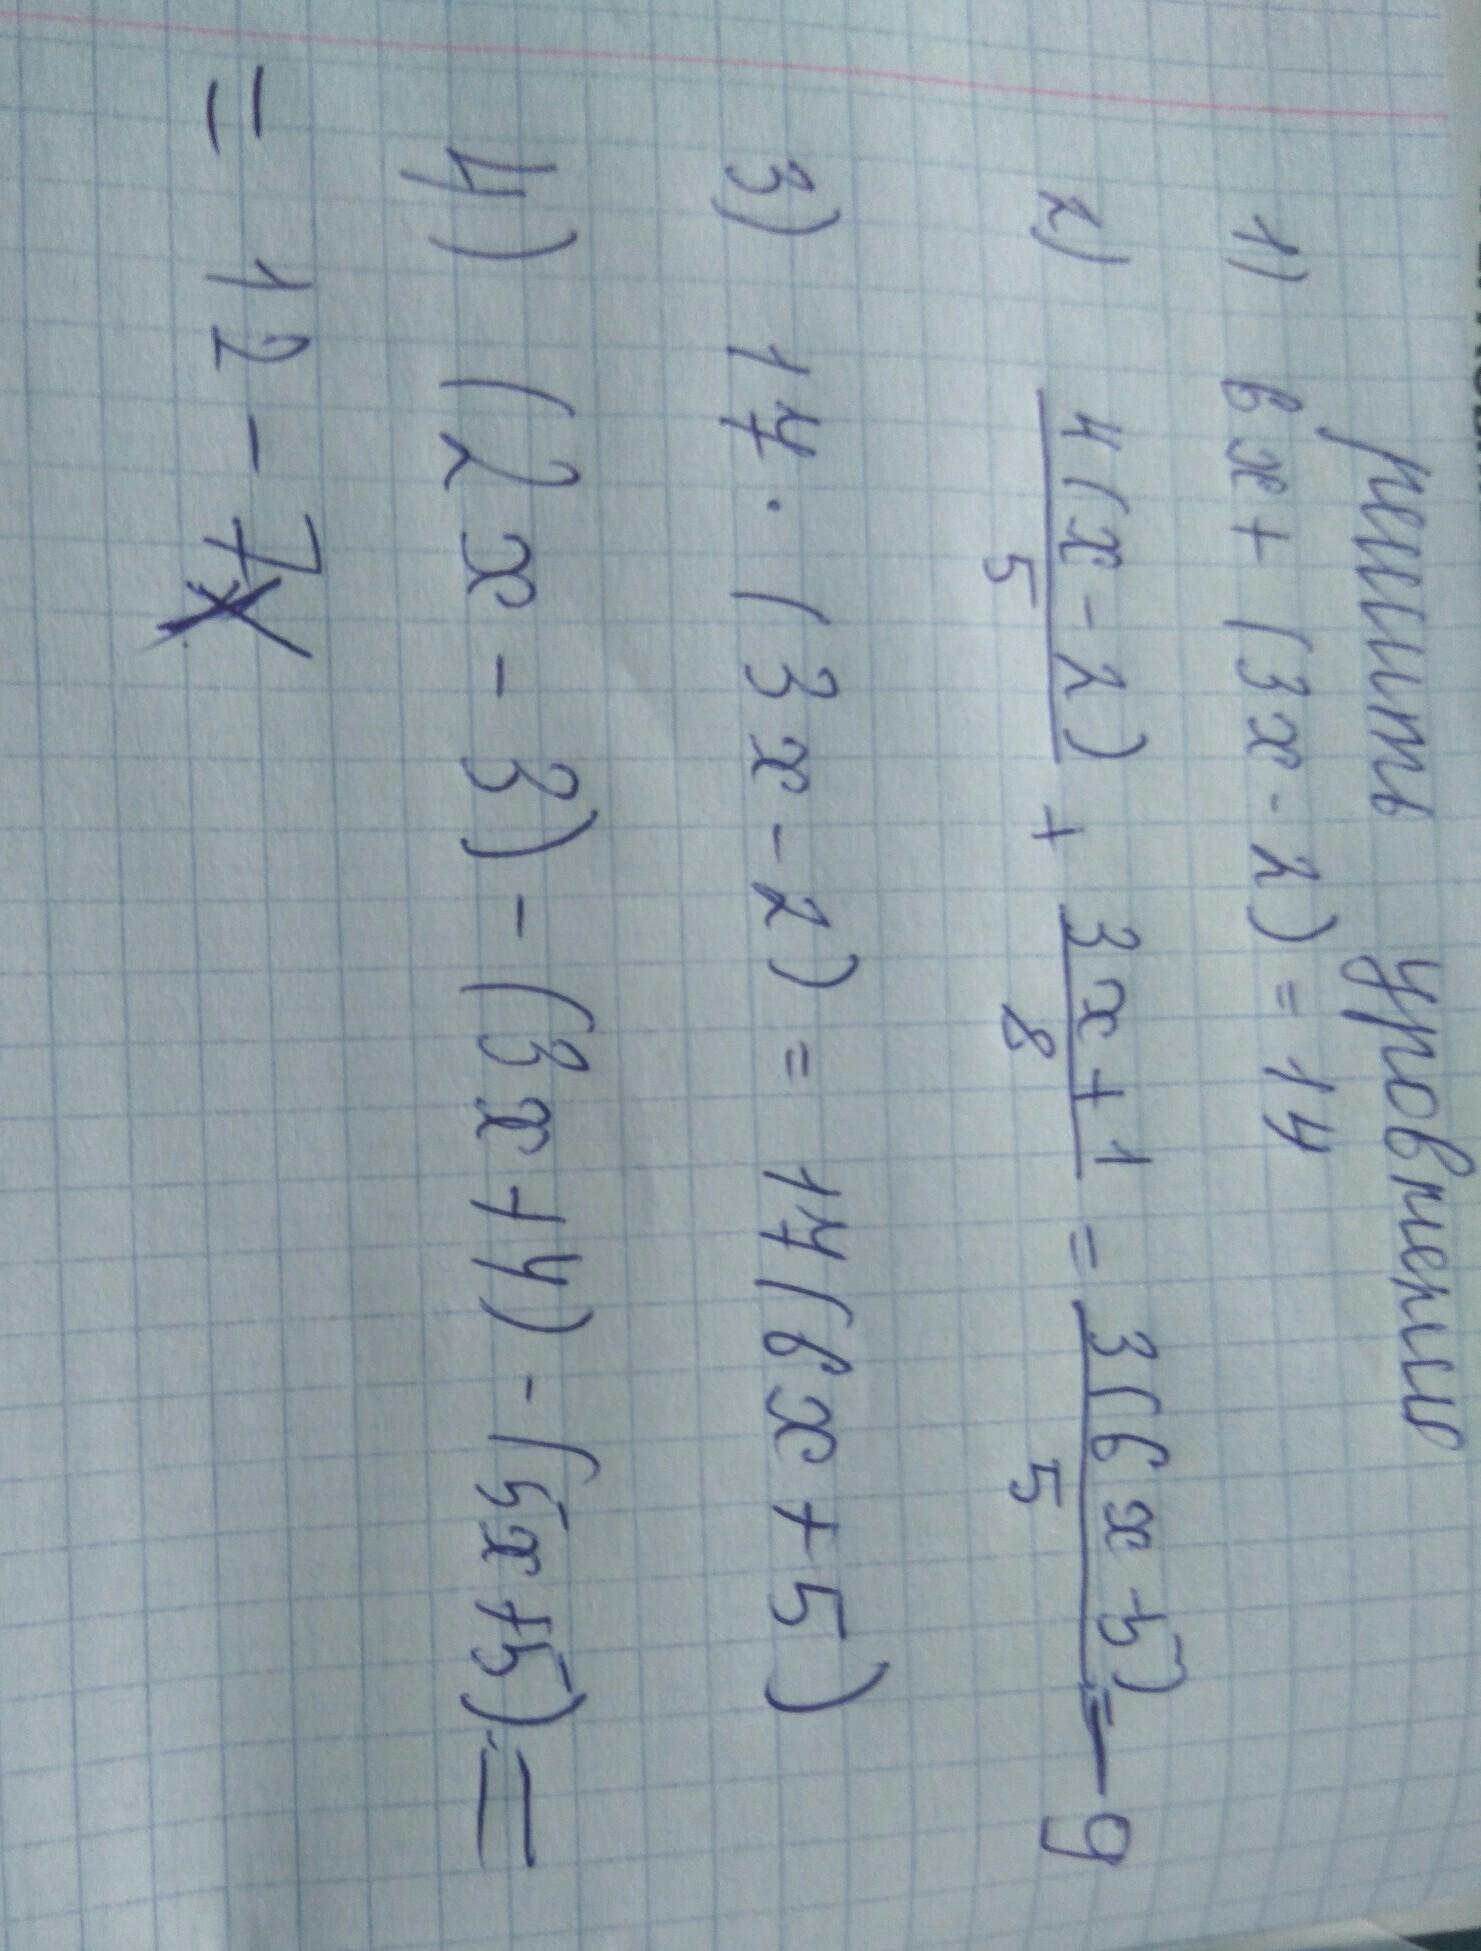 решить уровнению
1) 6x + (3x - 2) = 14
2) 4(x - 2)/5 + 3x + 1/8 = 3(6x + 5)/5 - 9
3) 14 · (3x - 2) = 14(6x + 5)
4) (2x - 3) - (3x + 4) - (5x + 5) =
= 12 - 7x